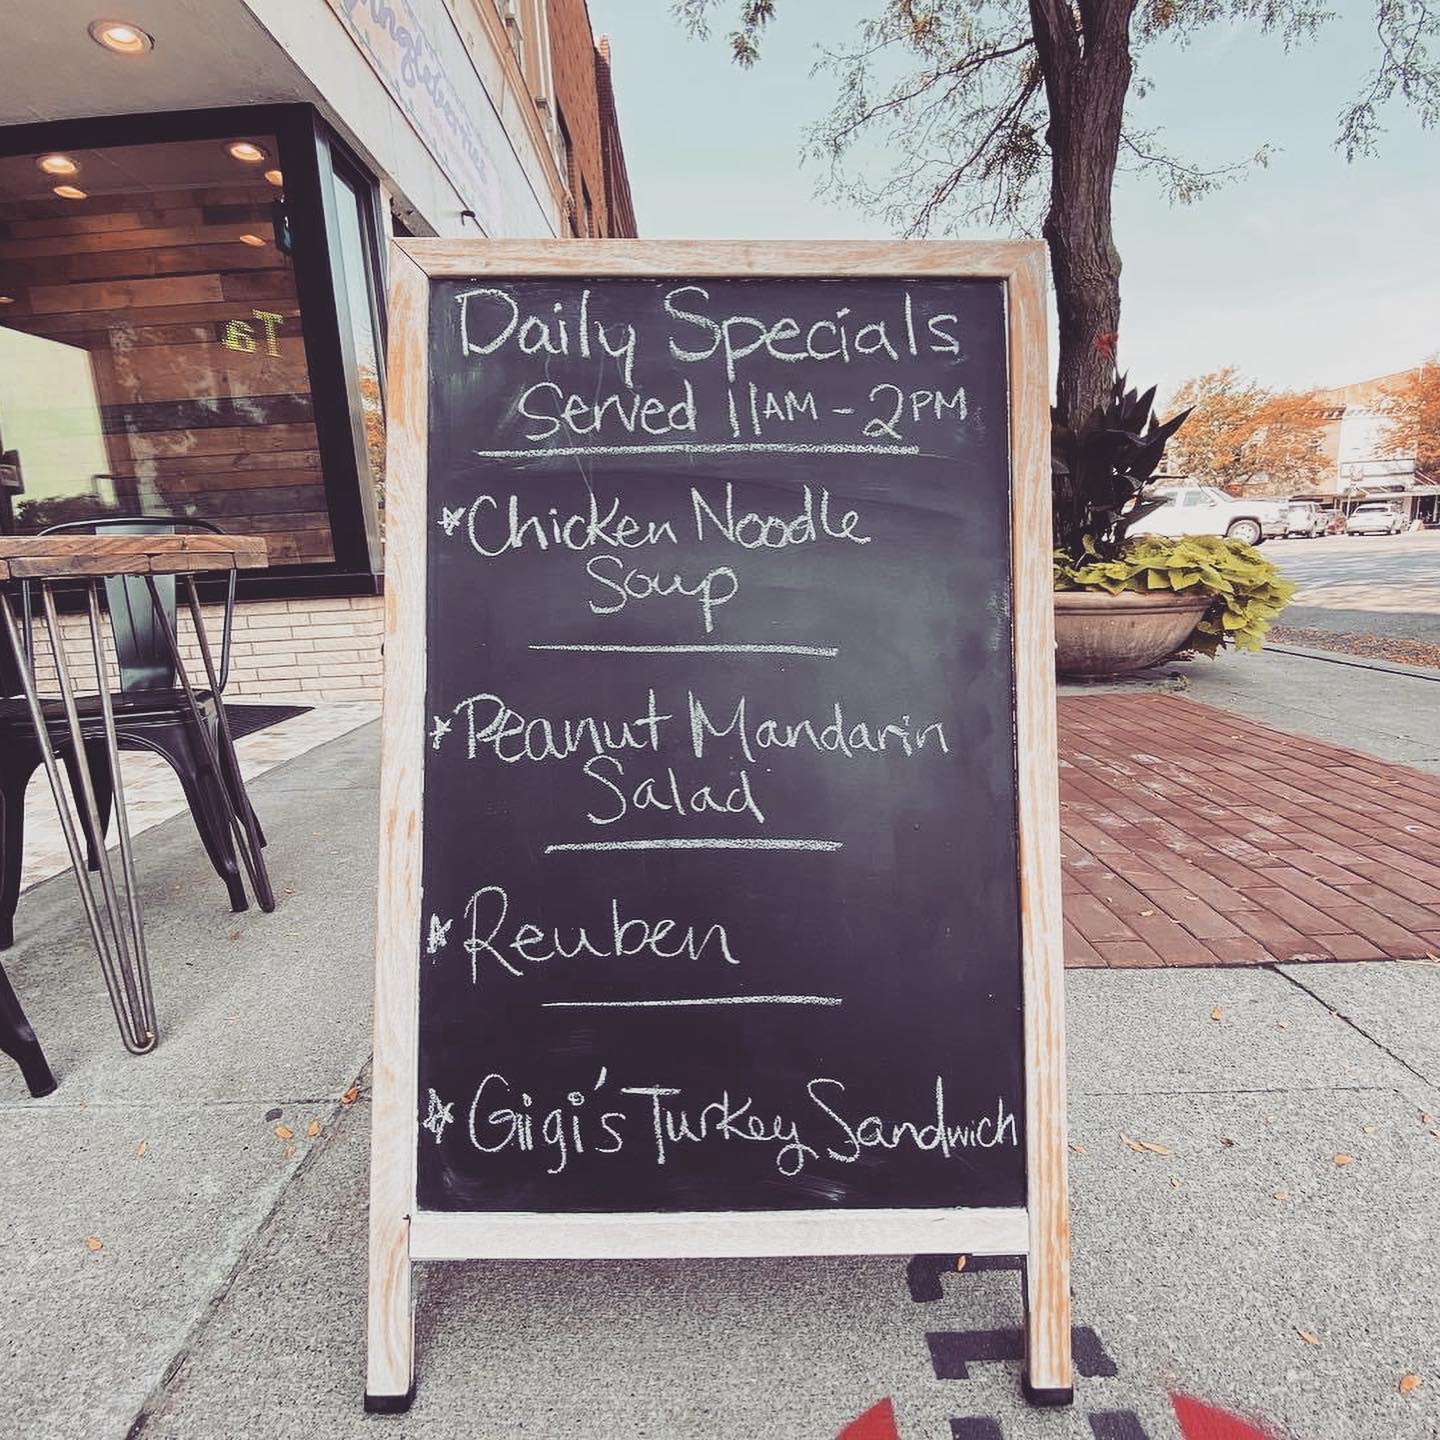 Daily Specials
Served 11AM - 2PM
*Chicken Noodle
Soup
*Peanut Mandarin
Salad
*Reuben
*Gigi's Turkey Sandwich
Ta